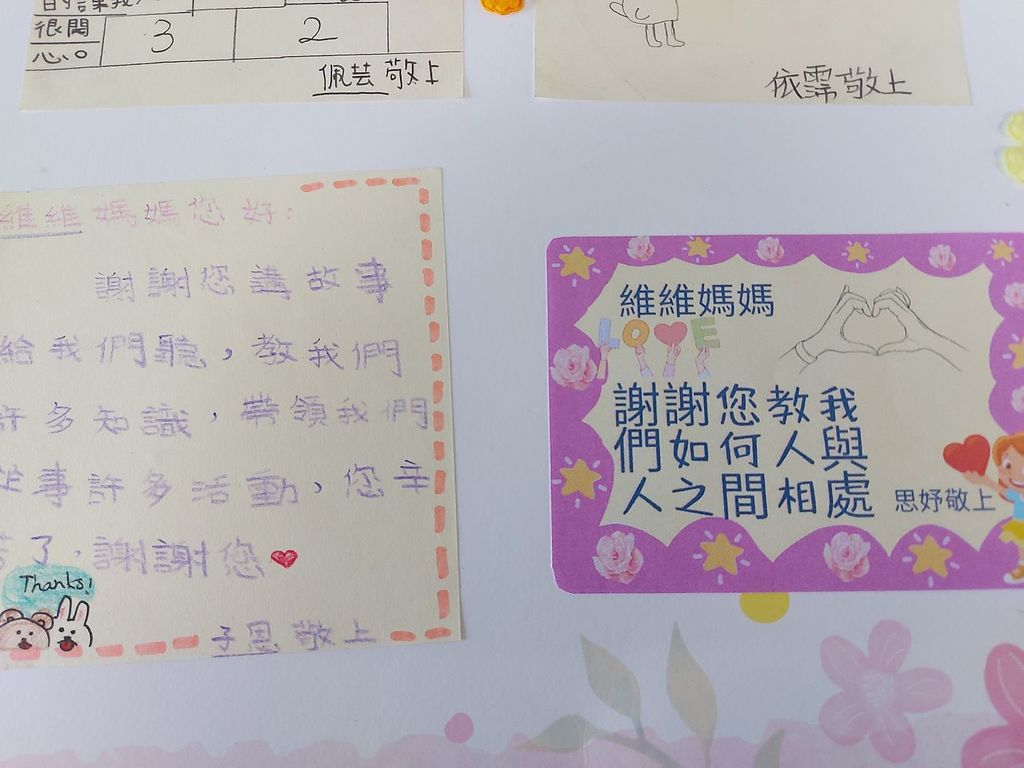 很開
心。
3
2
佩芸敬上
依霈敬上
維維媽媽您好:
謝謝您講故事
給我們聽,教我們
許多知識,帶領我們
從事許多活動,您辛
苦了,謝謝您
Thanks!
子恩敬上
維維媽媽
LOVE
謝謝您教我
們如何人與
人之間相處
思妤敬上